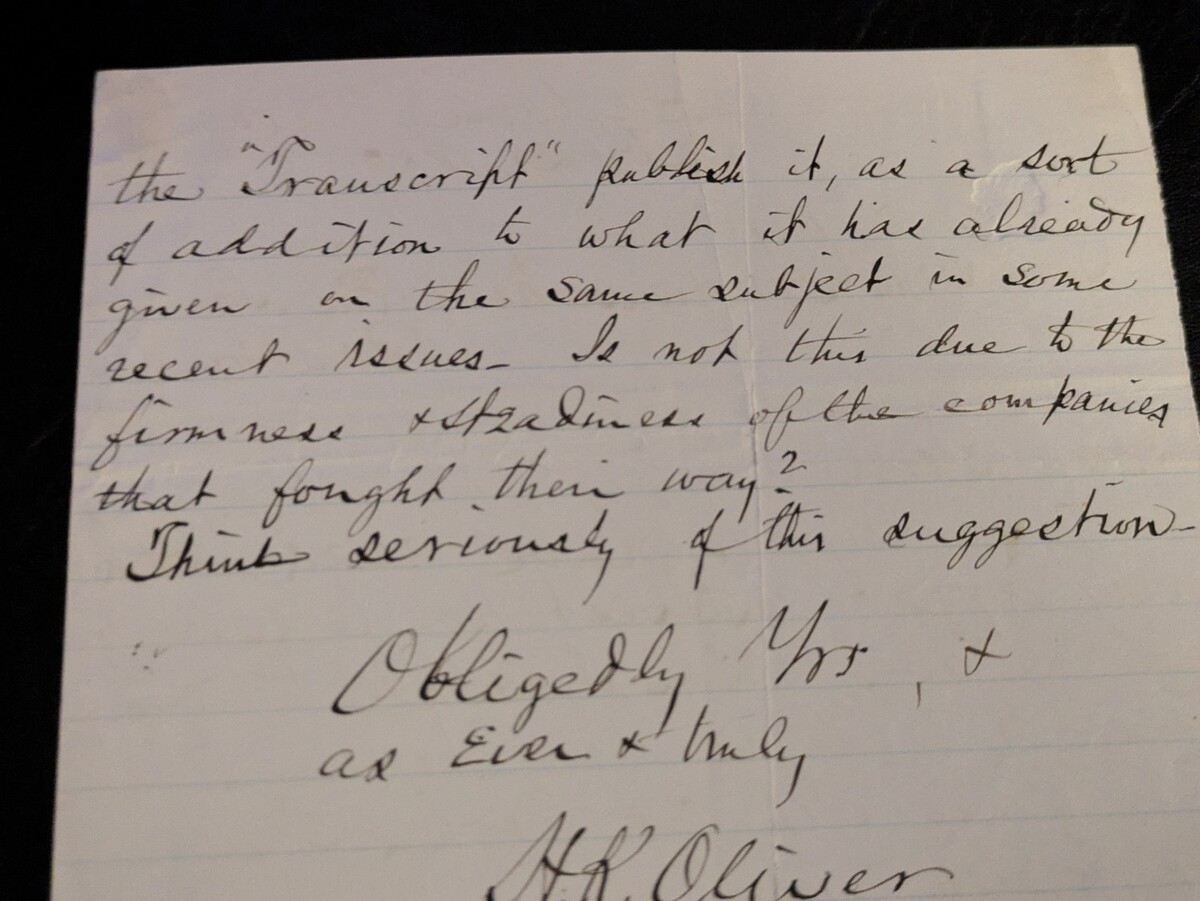 the "Transcript" publish it, as a sort
of addition to what it has already
given on the same subject in some
recent issues- Is not this due to the
firmness & steadiness of the companies
that fought their way?
Think seriously of this suggestion-
Obligedly Yrs, &
as Ever & truly
H.K. Oliver